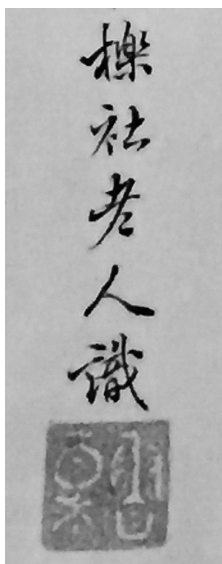 櫟社老人識